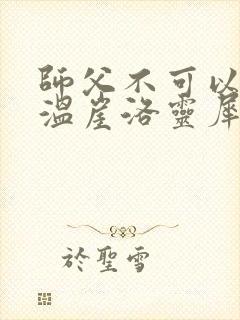 師父不可以
溫崖洛靈犀
於聖雪